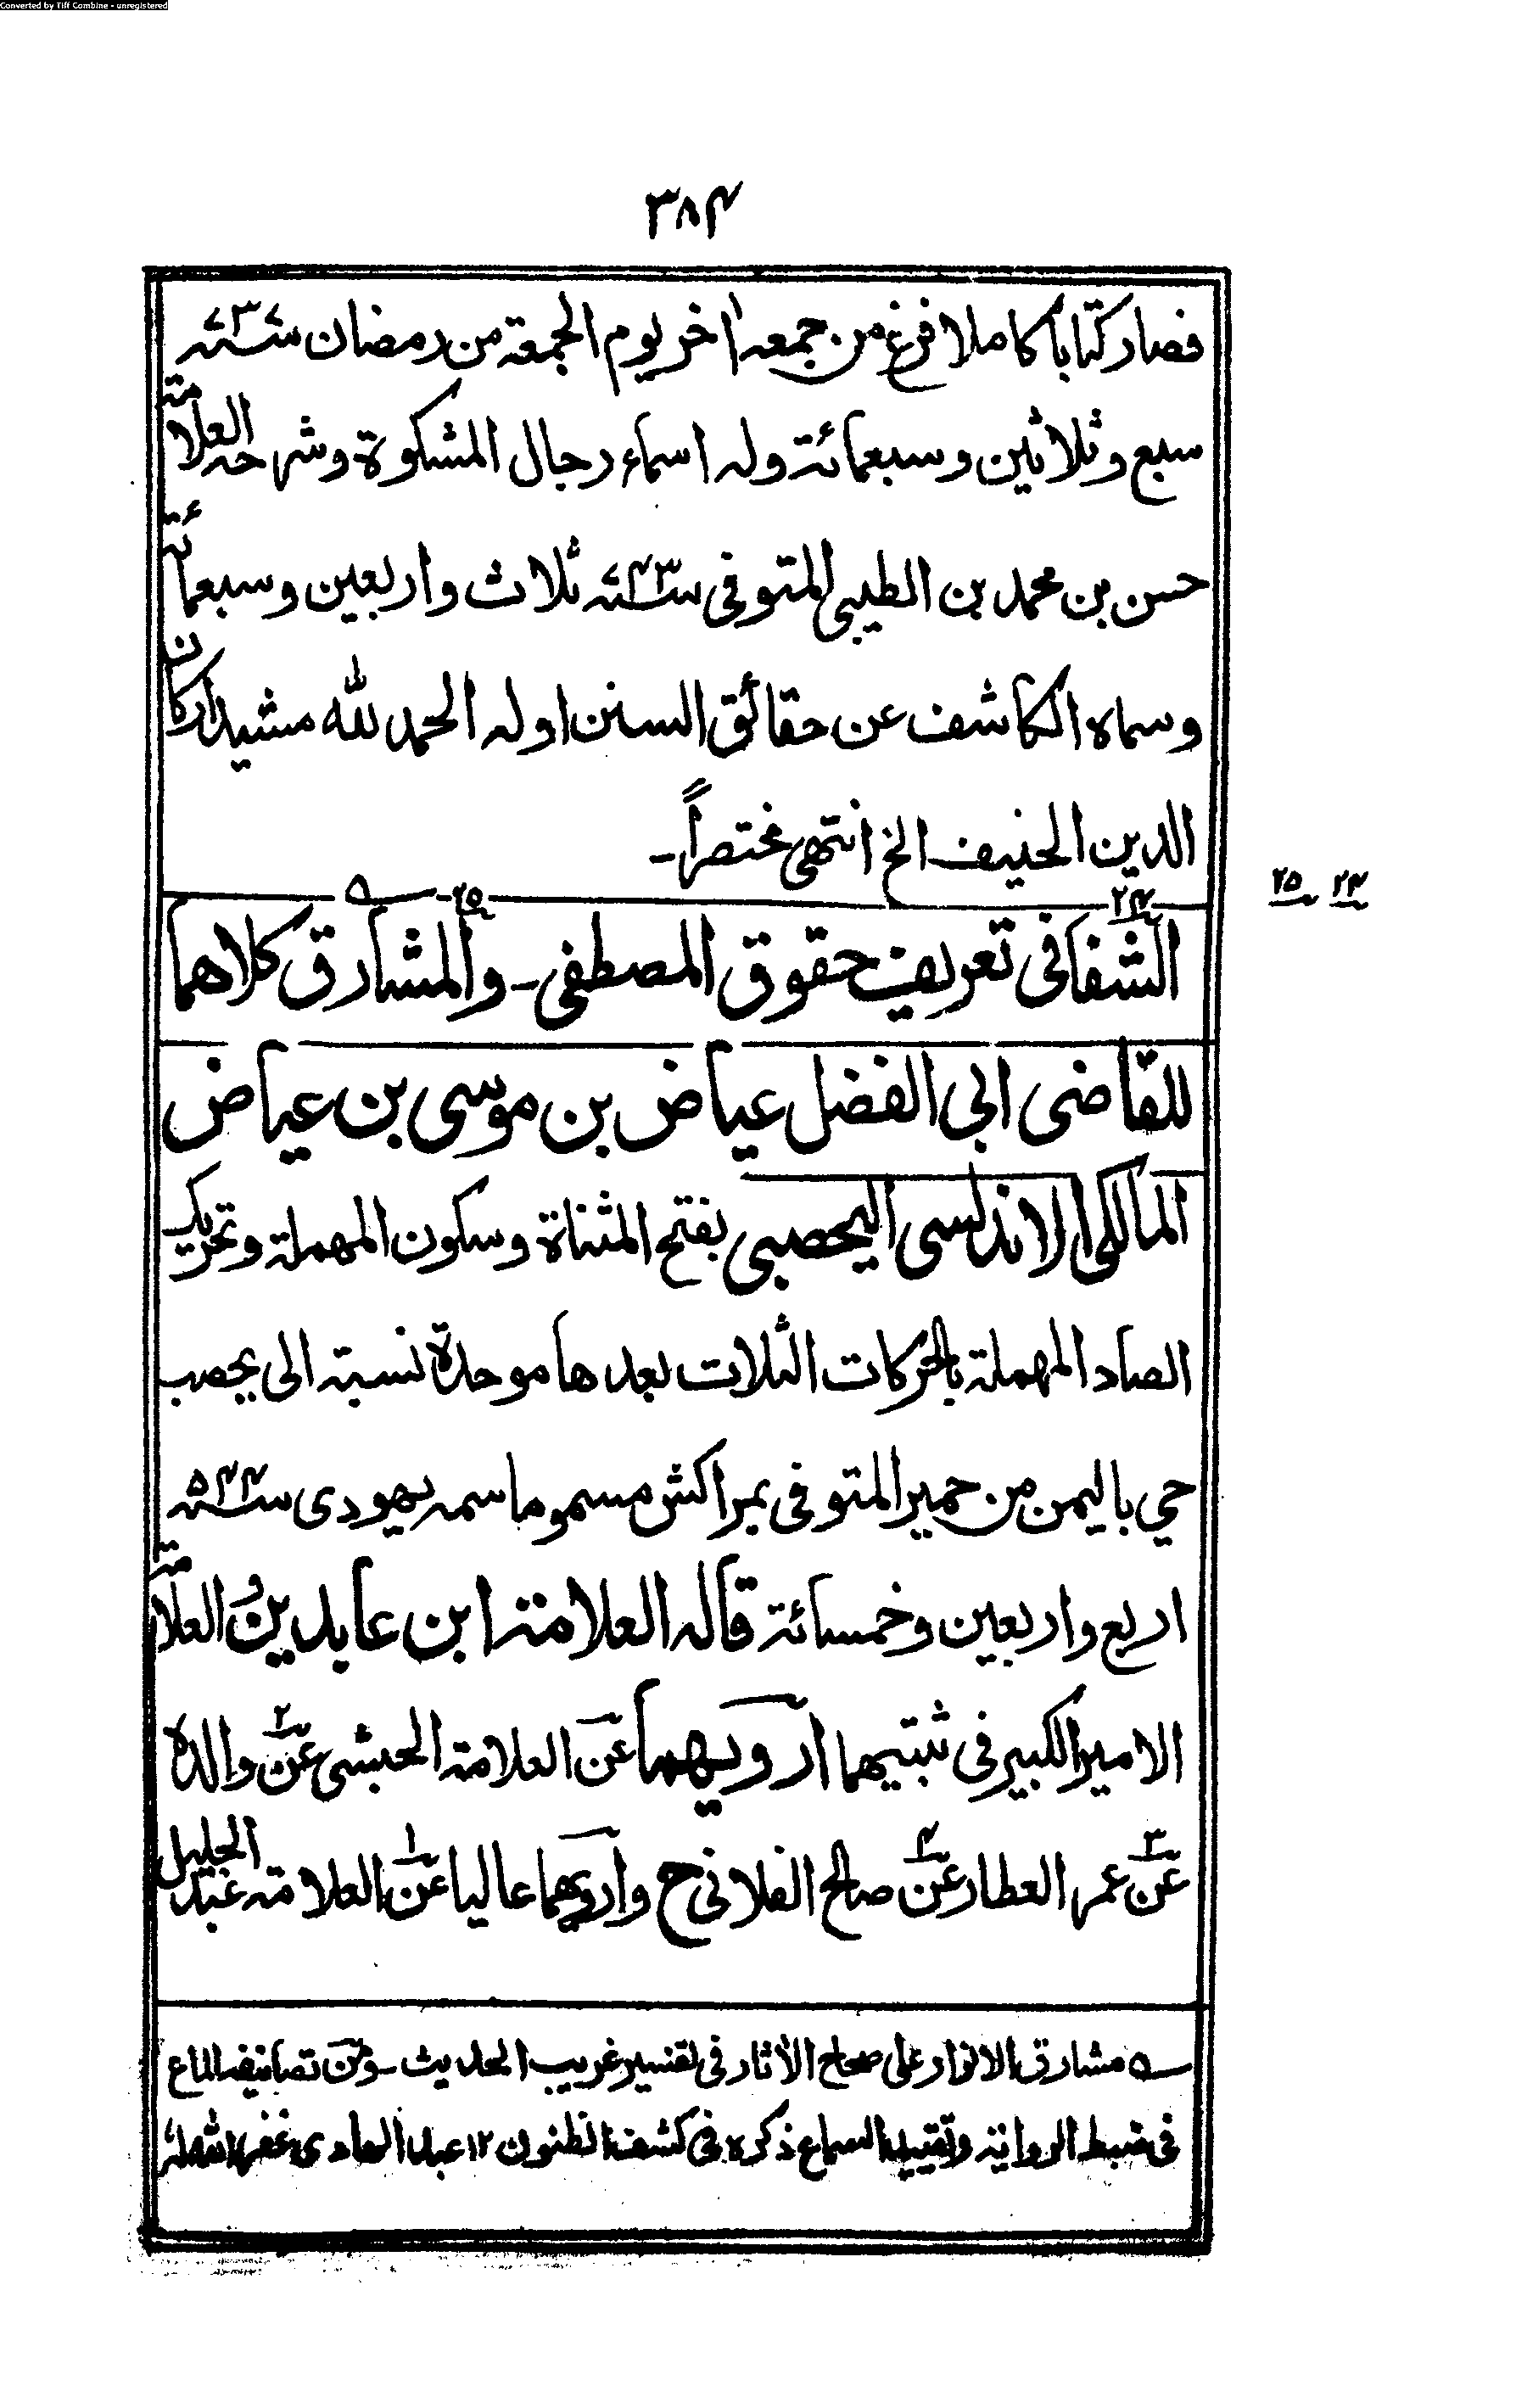 Converted by Tiff Combine - unregistered
٣٨٤
فصار كتابا كاملا فرغ من جمعه اٰخر يوم الجمعة من رمضان سنة ٧٣٧
سبع وثلاثين وسبعمائة وله اسماء رجال المشكوة وشرحه العلامة
حسن بن محمد بن الطيبي المتوفى سنة ٧٤٣ ثلاث واربعين وسبعمائة
وسماه الكاشف عن حقائق السنن اوله الحمد لله مشيد اركان
الدين الحنيف الخ انتهى مختصراً ـ
٢٤ ٢٥
الشفا فى تعريف حقوق المصطفى ـ والمشارق كلاهما
للقاضى ابى الفضل عياض بن موسى بن عياض
المالكى الاندلسى اليحصبى بفتح المثناة وسكون المهملة وتحريك
الصاد المهملة بالحركات الثلاث بعدها موحدة نسبة الى يحصب
حي باليمن من حمير المتوفى بمراكش مسموما سمه يهودى سنة ٥٤٤
اربع واربعين وخمسائة قاله العلامة ابن عابدين و العلامة
الامير الكبير فى ثبتيهما ارويهما عن العلامة الحبشى عن٢ والده
عن٣ عمر العطار عن٤ صالح الفلانى ح وارويهما عاليا عن١ العلامة عبد الجليل
ـه مشارق الانوار على صحاح الأثار فى تفسير غريب الحديث ـ ومن تصانيفه الماع
فى ضبط الرواية وتقييد السماع ذكره فى كشف الظنون ١٢ عبد الهادى غفر الله له